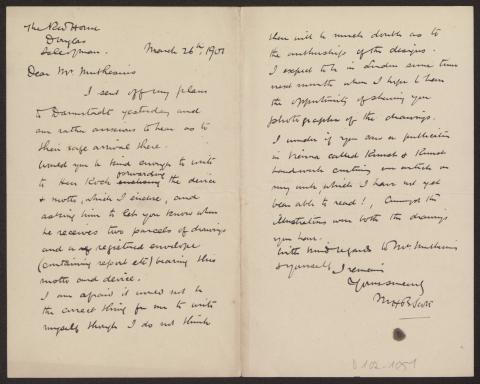 The Red House
Douglas
Isle of Man.
March 26th, 1901
Dear Mr. Muthesius
I sent off my plans
to Darmstadt yesterday and
am rather anxious to hear as to
their safe arrival there.
Would you be kind enough to write
to Herr Koch forwarding the device
& motto, which I enclose, and
asking him to let you know when
he receives two parcels of drawings
and a registered envelope
(containing report etc) bearing this
motto and device.
I am afraid it would not be
the correct thing for me to write
myself though I do not think
there will be much doubt as to
the authorship of the designs.
I expect to be in London some time
next month when I hope to have
the opportunity of showing you
photographs of the drawings.
I wonder if you saw a publication
in Vienna called Kunst & Kunst
Handwerk containing an article on
my work, which I have not yet
been able to read!, amongst the
illustrations were both the drawings
you have.
With kind regards to Mrs Muthesius
& yourself I remain
Yours sincerely
M H B Scott
D 102-1051